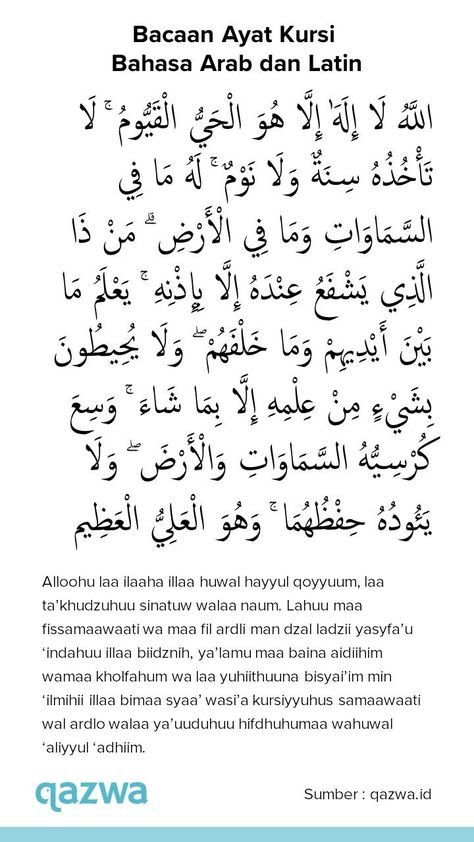 Bacaan Ayat Kursi
Bahasa Arab dan Latin
اللَّهُ لَا إِلَٰهَ إِلَّا هُوَ الْحَيُّ الْقَيُّومُ ۚ لَا
تَأْخُذُهُ سِنَةٌ وَلَا نَوْمٌ ۚ لَهُ مَا فِي
السَّمَاوَاتِ وَمَا فِي الْأَرْضِ ۗ مَنْ ذَا
الَّذِي يَشْفَعُ عِنْدَهُ إِلَّا بِإِذْنِهِ ۚ يَعْلَمُ مَا
بَيْنَ أَيْدِيهِمْ وَمَا خَلْفَهُمْ ۖ وَلَا يُحِيطُونَ
بِشَيْءٍ مِنْ عِلْمِهِ إِلَّا بِمَا شَاءَ ۚ وَسِعَ
كُرْسِيُّهُ السَّمَاوَاتِ وَالْأَرْضَ ۖ وَلَا
يَئُودُهُ حِفْظُهُمَا ۚ وَهُوَ الْعَلِيُّ الْعَظِيم
Alloohu laa ilaaha illaa huwal hayyul qoyyuum, laa
ta’khudzuhuu sinatuw walaa naum. Lahuu maa
fissamaawaati wa maa fil ardli man dzal ladzii yasyfa’u
‘indahuu illaa biidznih, ya’lamu maa baina aidiihim
wamaa kholfahum wa laa yuhiithuuna bisyai’im min
‘ilmihii illaa bimaa syaa’ wasi’a kursiyyuhus samaawaati
wal ardlo walaa ya’uuduhuu hifdhuhumaa wahuwal
‘aliyyul ‘adhiim.
qazwa
Sumber : qazwa.id